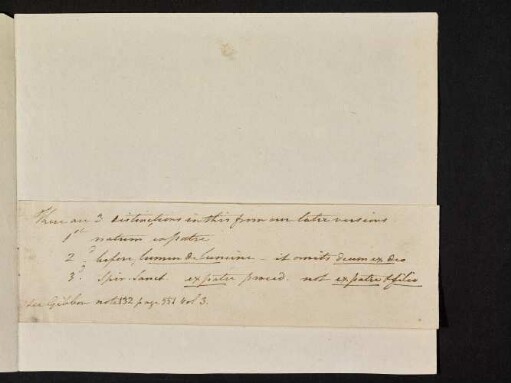 There are 3 distinctions in this from our later versions
1st natum ex patre
2d. before, lumen de lumine - it omits deum ex deo
3d. Spir. Sanct. ex patre proced. not ex patre & filio
see Gibbon note 132 page 551 vol 3.